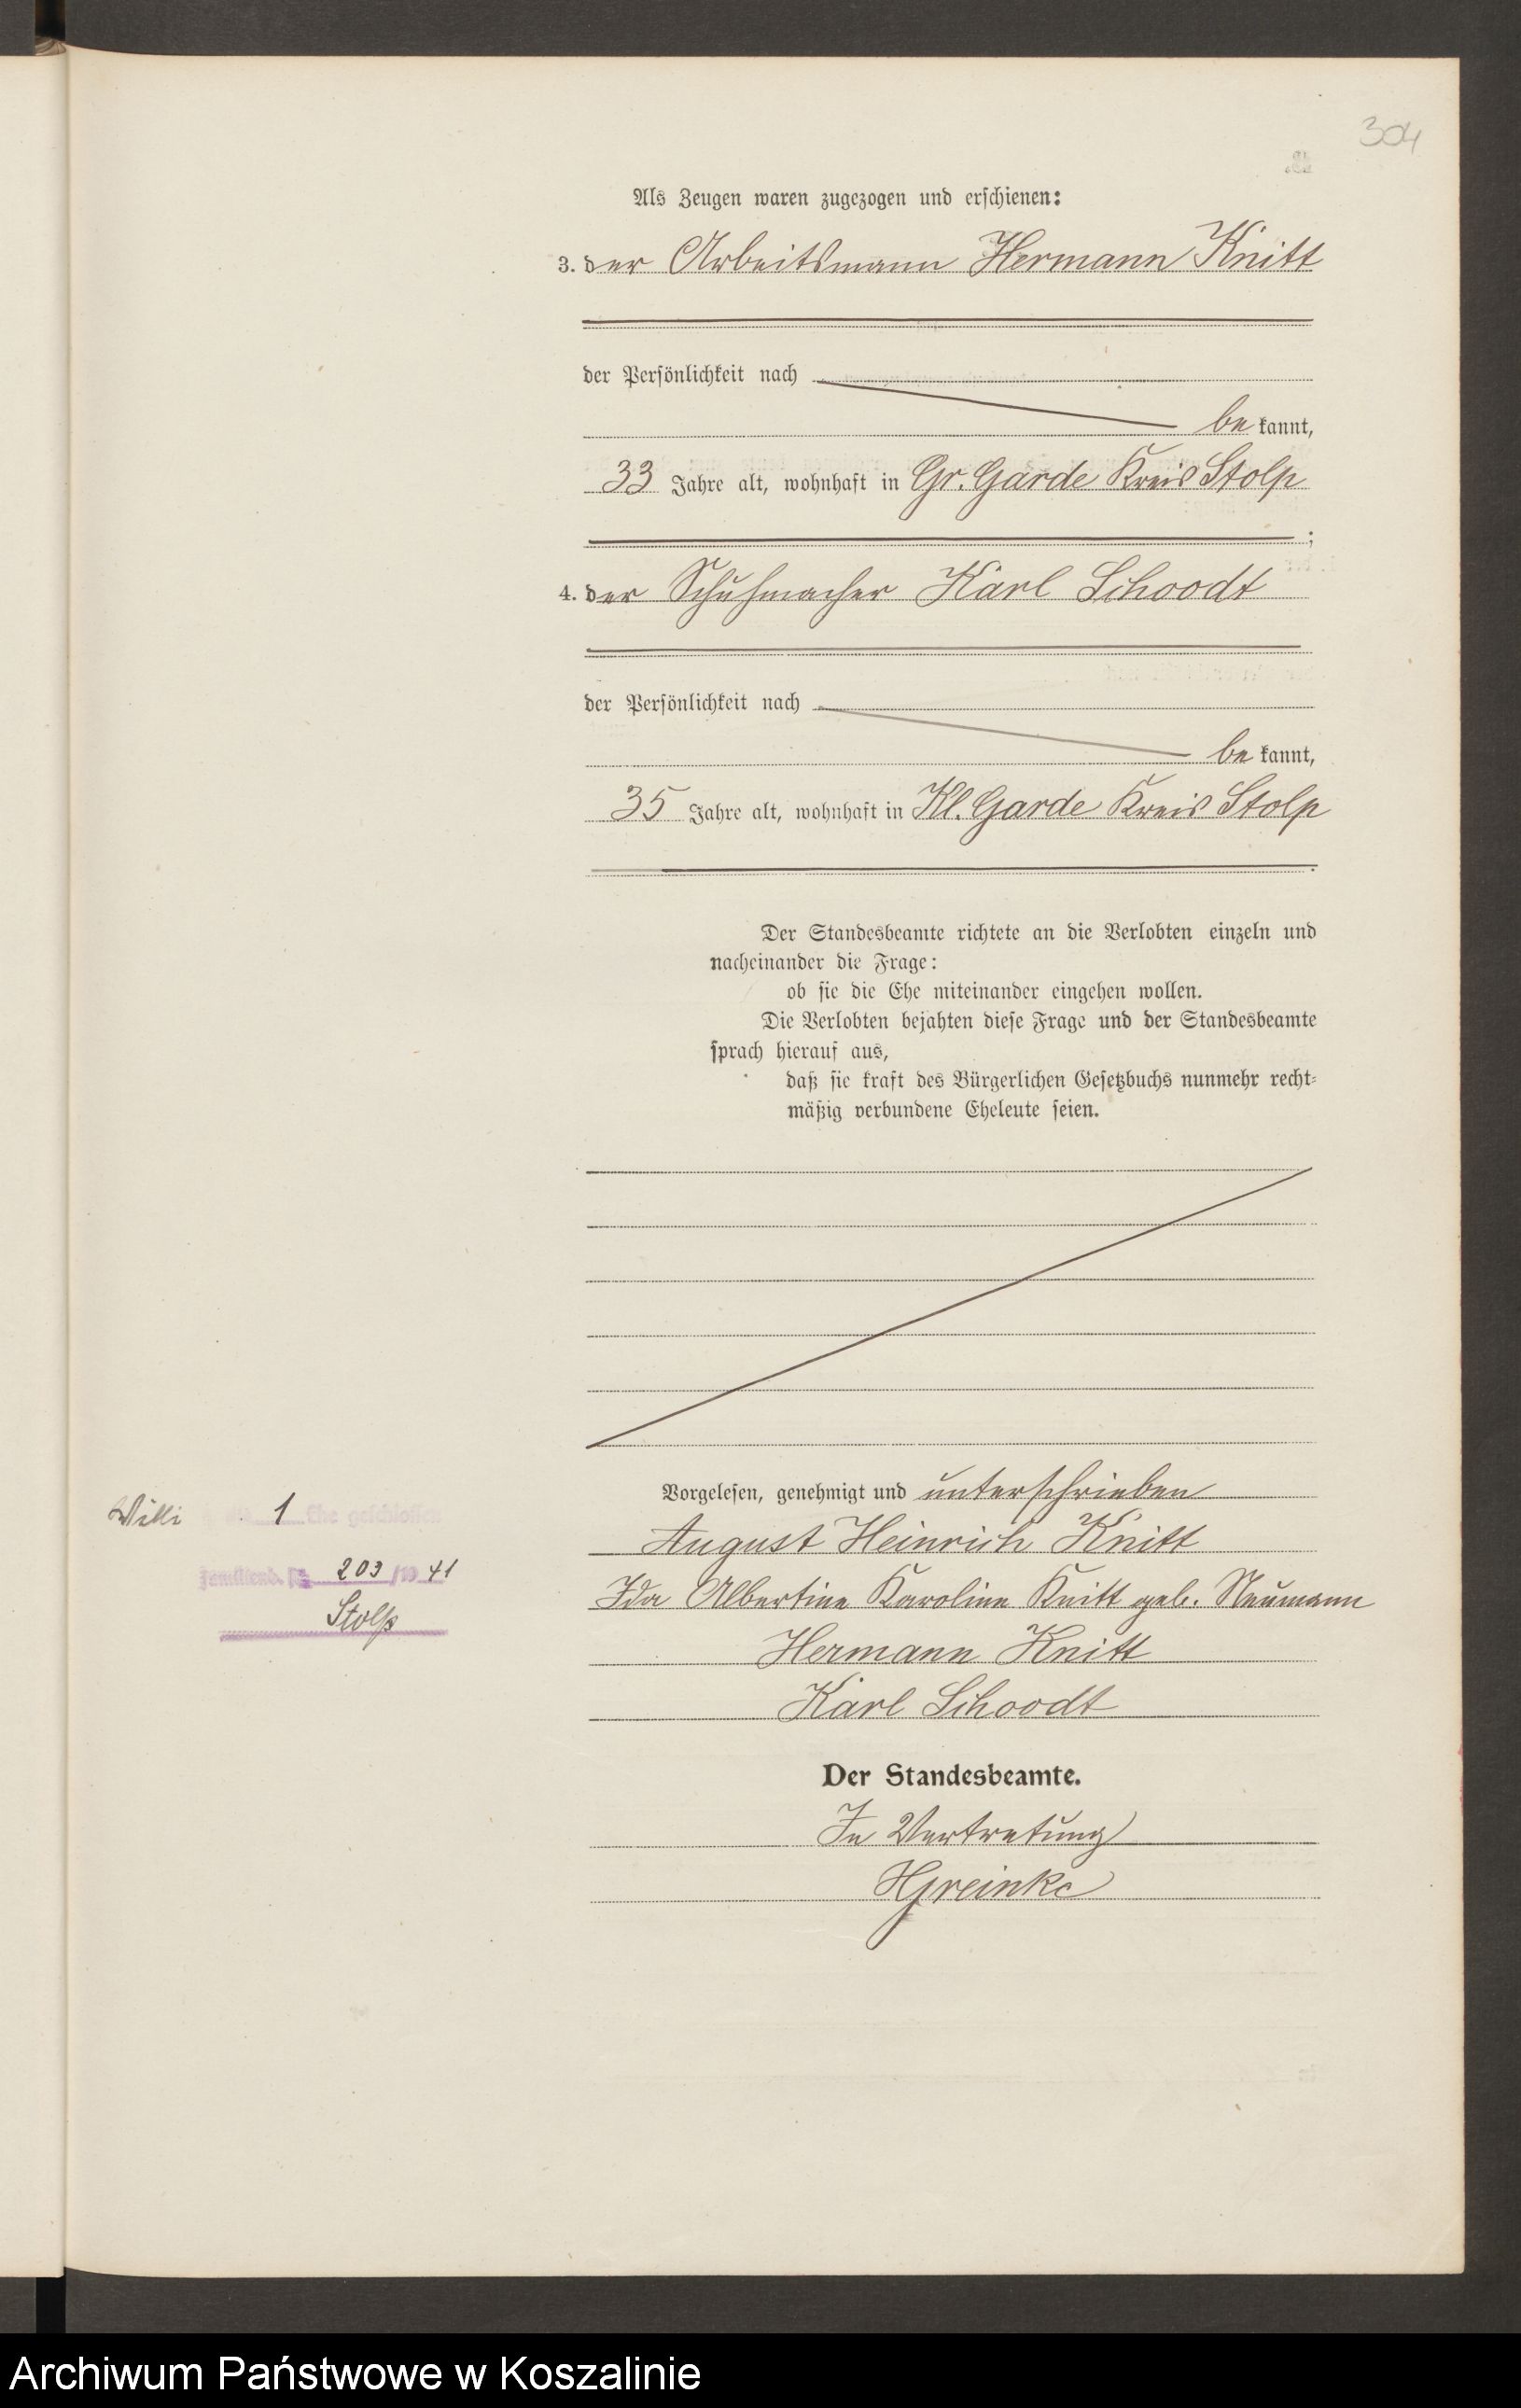 304
Als Zeugen waren zugezogen und erschienen:
3. der Arbeitsmann Hermann Knitt
der Persönlichkeit nach
be kannt,
33 Jahre alt, wohnhaft in Gr. Garde Kreis Stolp
;
4. der Schuhmacher Karl Schoodt
der Persönlichkeit nach
be kannt,
35 Jahre alt, wohnhaft in Kl. Garde Kreis Stolp
.
Der Standesbeamte richtete an die Verlobten einzeln und
nacheinander die Frage:
ob sie die Ehe miteinander eingehen wollen.
Die Verlobten bejahten diese Frage und der Standesbeamte
sprach hierauf aus,
daß sie kraft des Bürgerlichen Gesetzbuchs nunmehr recht-
mäßig verbundene Eheleute seien.
Vorgelesen, genehmigt und unterschrieben
August Heinrich Knitt
Ida Albertine Karoline Knitt geb. Neumann
Hermann Knitt
Karl Schoodt
Der Standesbeamte.
In Vertretung
HGreinke
Willi 1 Ehe geschlossen
203/1941
Stolp
Archiwum Państwowe w Koszalinie